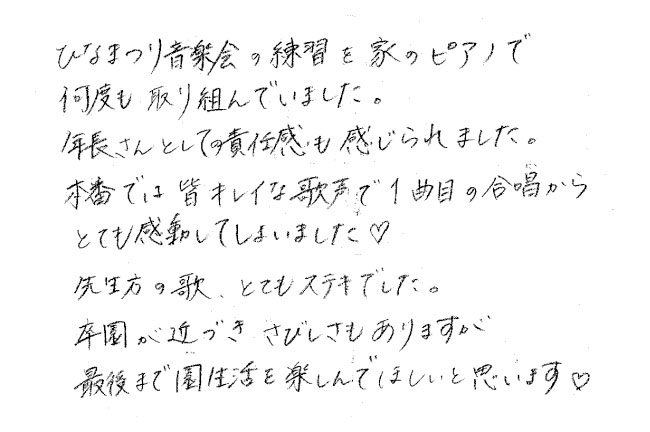 ひなまつり音楽会の練習を家のピアノで
何度も取り組んでいました。
年長さんとしての責任感も感じられました。
本番では皆キレイな歌声で1曲目の合唱から
とても感動してしまいました♡
先生方の歌、とてもステキでした。
卒園が近づきさびしさもありますが
最後まで園生活を楽しんでほしいと思います♡